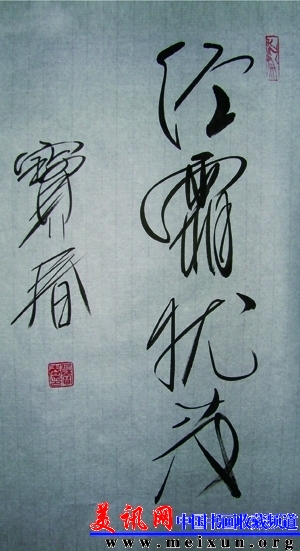 经霜犹茂
宝春
美讯网 中国书画收藏频道
www.meixun.org